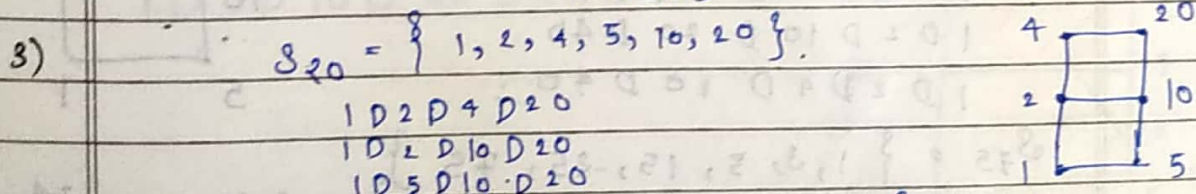 3) S20 = { 1, 2, 4, 5, 10, 20 }.
1 D 2 D 4 D 20
1 D 2 D 10 D 20
1 D 5 D 10 D 20
4 20
2 10
1 5